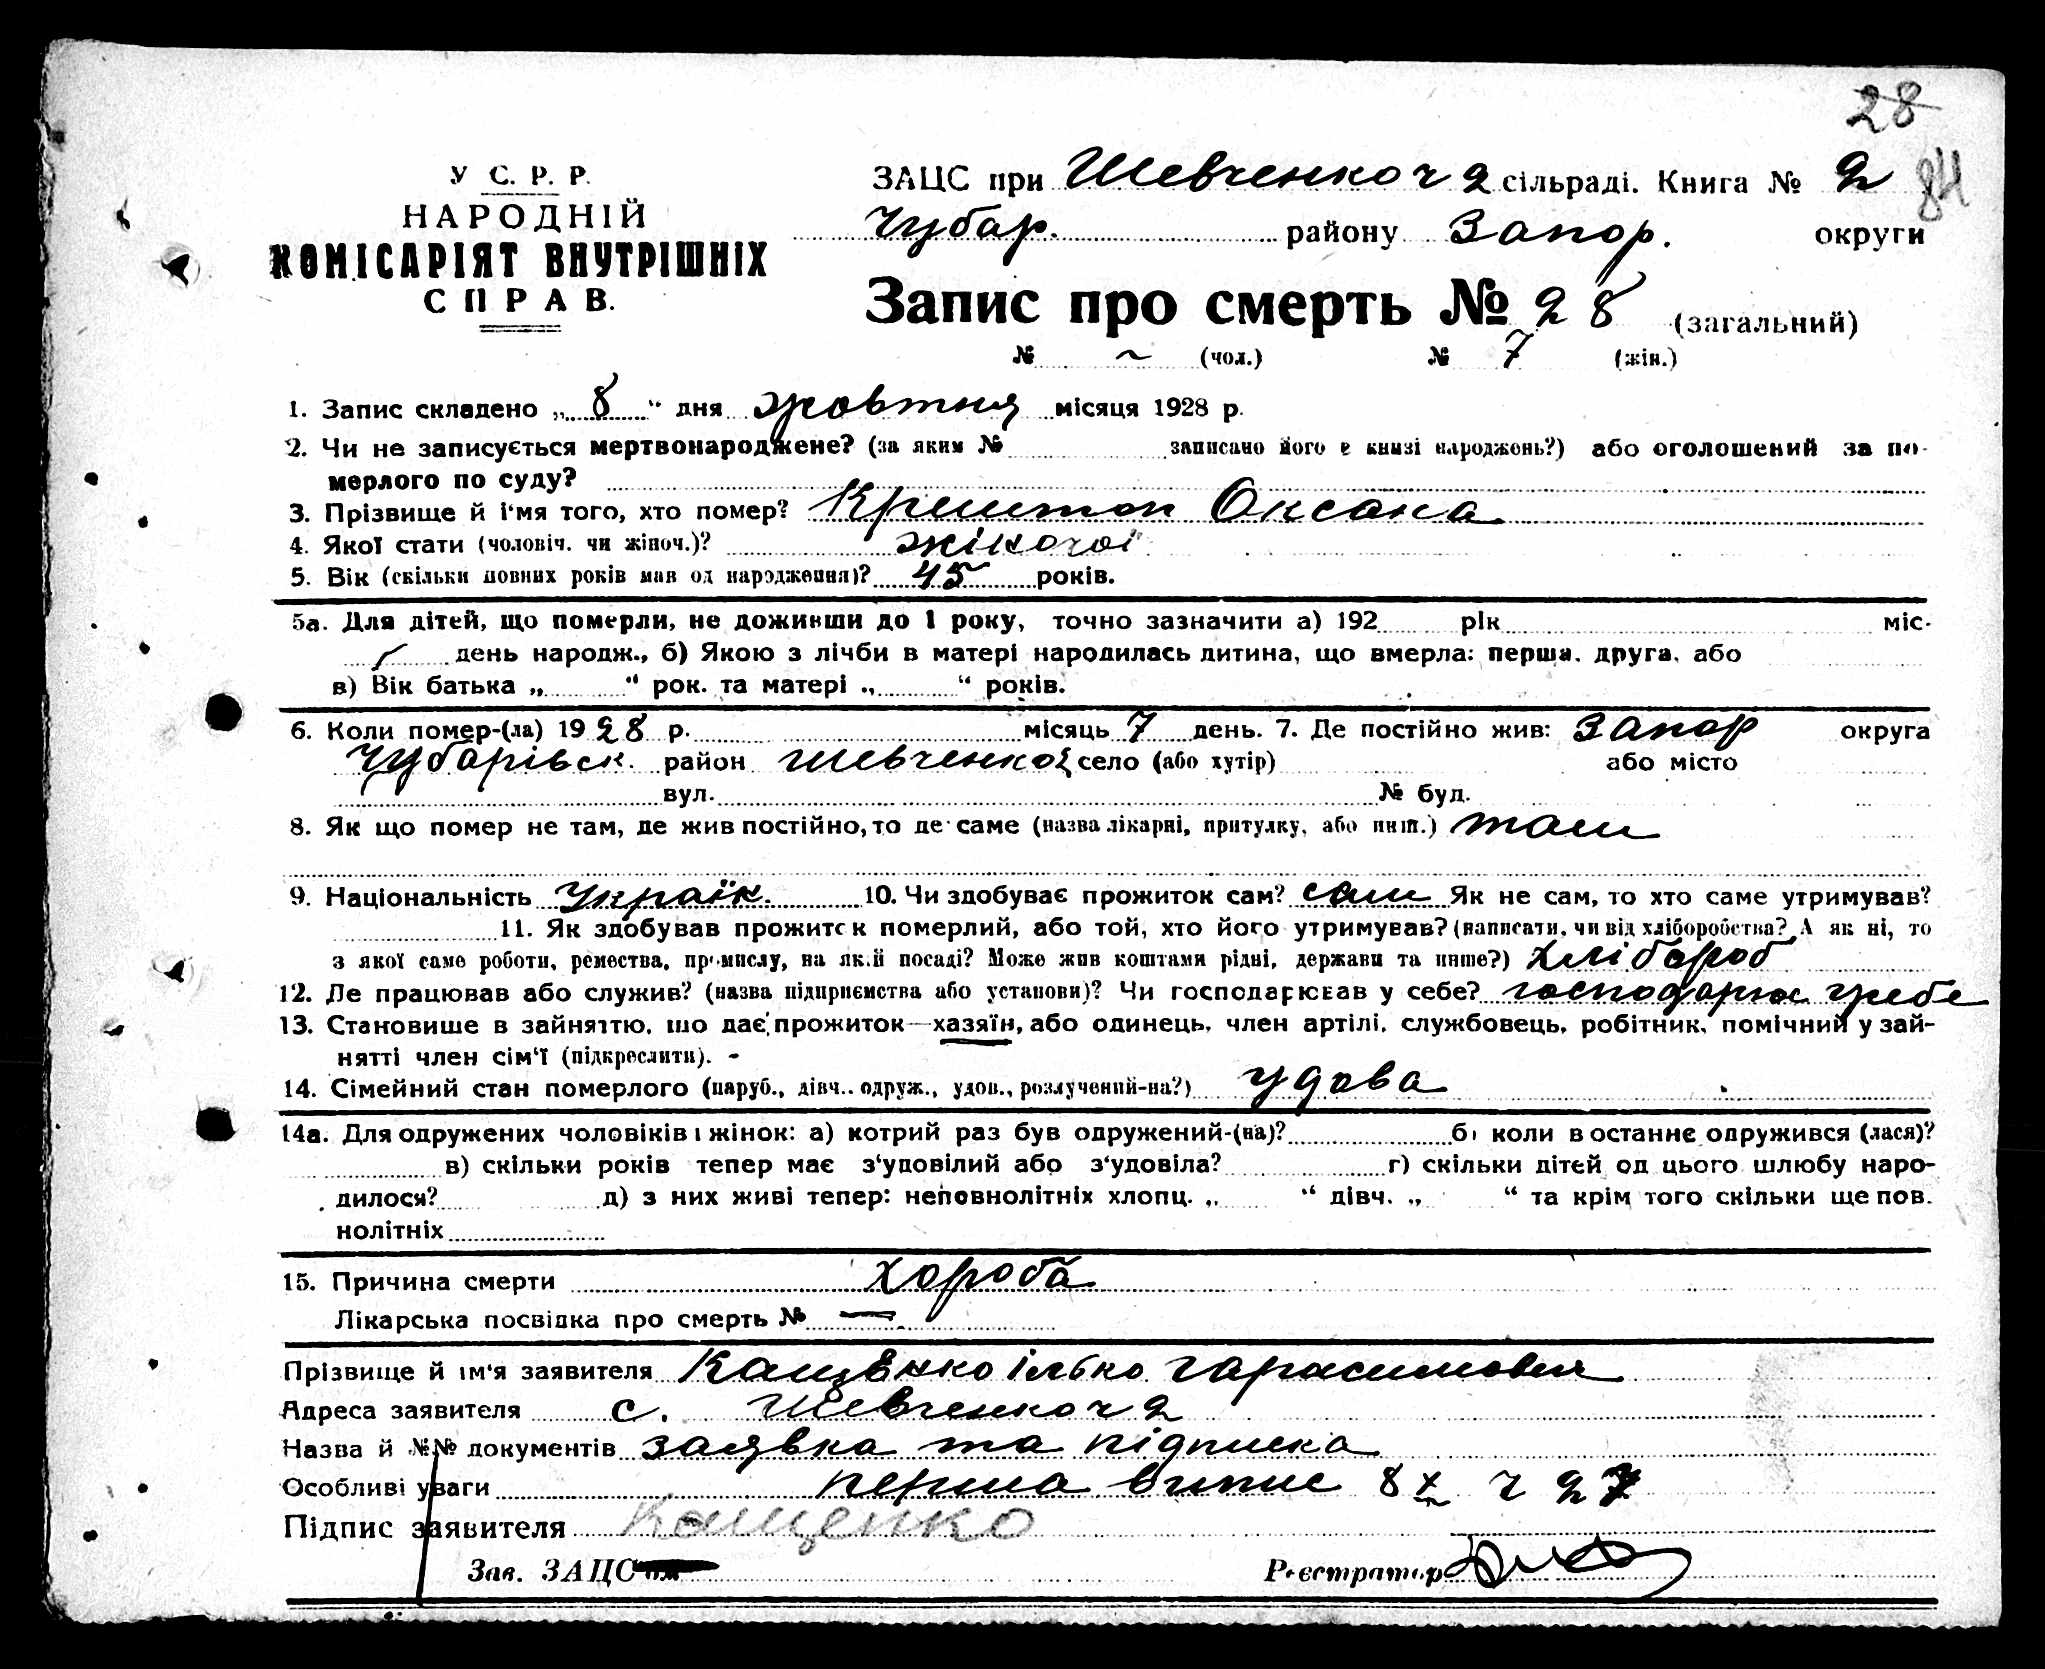 28
84
У С. Р. Р.
НАРОДНІЙ
КОМІСАРІЯТ ВНУТРІШНІХ
СПРАВ.
ЗАЦС при Шевченко ч 2 сільраді. Книга № 2
Чубар. району Запор. округи
Запис про смерть № 28 (загальний)
№ ~ (чол.) № 7 (жін.)
1. Запис складено „ 8 “ дня жовтня місяця 1928 р.
2. Чи не записується мертвонароджене? (за яким № записано його в книзі народжень?) або оголошений за по-
мерлого по суду?
3. Прізвище й і‘мя того, хто помер? Оксана
4. Якої стати (чоловіч. чи жіноч.)? жіночої
5. Вік (скільки повних років мав од народження)? 45 років.
5а. Для дітей, що померли, не доживши до 1 року, точно зазначити а) 192 рік міс.
день народж., б) Якою з лічби в матері народилась дитина, що вмерла: перша, друга, або
в) Вік батька „ “ рок. та матері „ “ років.
6. Коли помер-(ла) 1928 р. місяць 7 день. 7. Де постійно жив: Запор округа
Чубарівск. район Шевченко 2 село (або хутір) або місто
вул. № буд.
8. Як що помер не там, де жив постійно, то де саме (назва лікарні, притулку, або инш.) там
9. Національність Україк. 10. Чи здобуває прожиток сам? сам Як не сам, то хто саме утримував?
11. Як здобував прожиток померлий, або той, хто його утримував? (написати, чи від хліборобства? А як ні, то
з якої саме роботи, ремества, промислу, на якій посаді? Може жив коштами рідні, держави та инше?) хлібороб
12. Де працював або служив? (назва підприємства або установи)? Чи господарював у себе?
13. Становище в зайняттю, що дає прожиток—хазяїн, або одинець, член артілі, службовець, робітник, помічний у зай-
нятті член сім‘ї (підкреслити). -
14. Сімейний стан померлого (паруб., дівч., одруж., удов., розлучений-на?) удова
14а. Для одружених чоловіків і жінок: а) котрий раз був одружений-(на)? б) коли в останнє одружився (лася)?
в) скільки років тепер має з‘удовілий або з‘удовіла? г) скільки дітей од цього шлюбу наро-
дилося? д) з них живі тепер: неповнолітніх хлопц. „ “ дівч. „ “ та крім того скільки ще пов.
нолітніх
15. Причина смерти хороба
Лікарська посвідка про смерть № —
Прізвище й ім‘я заявителя Кащенко Ілько Гарасимович
Адреса заявителя с. Шевченко ч 2
Назва й №№ документів заявка та підписка
Особливі уваги перша випис 8 X ч 27
Підпис заявителя Кащенко
Зав. ЗАЦС Реєстратор